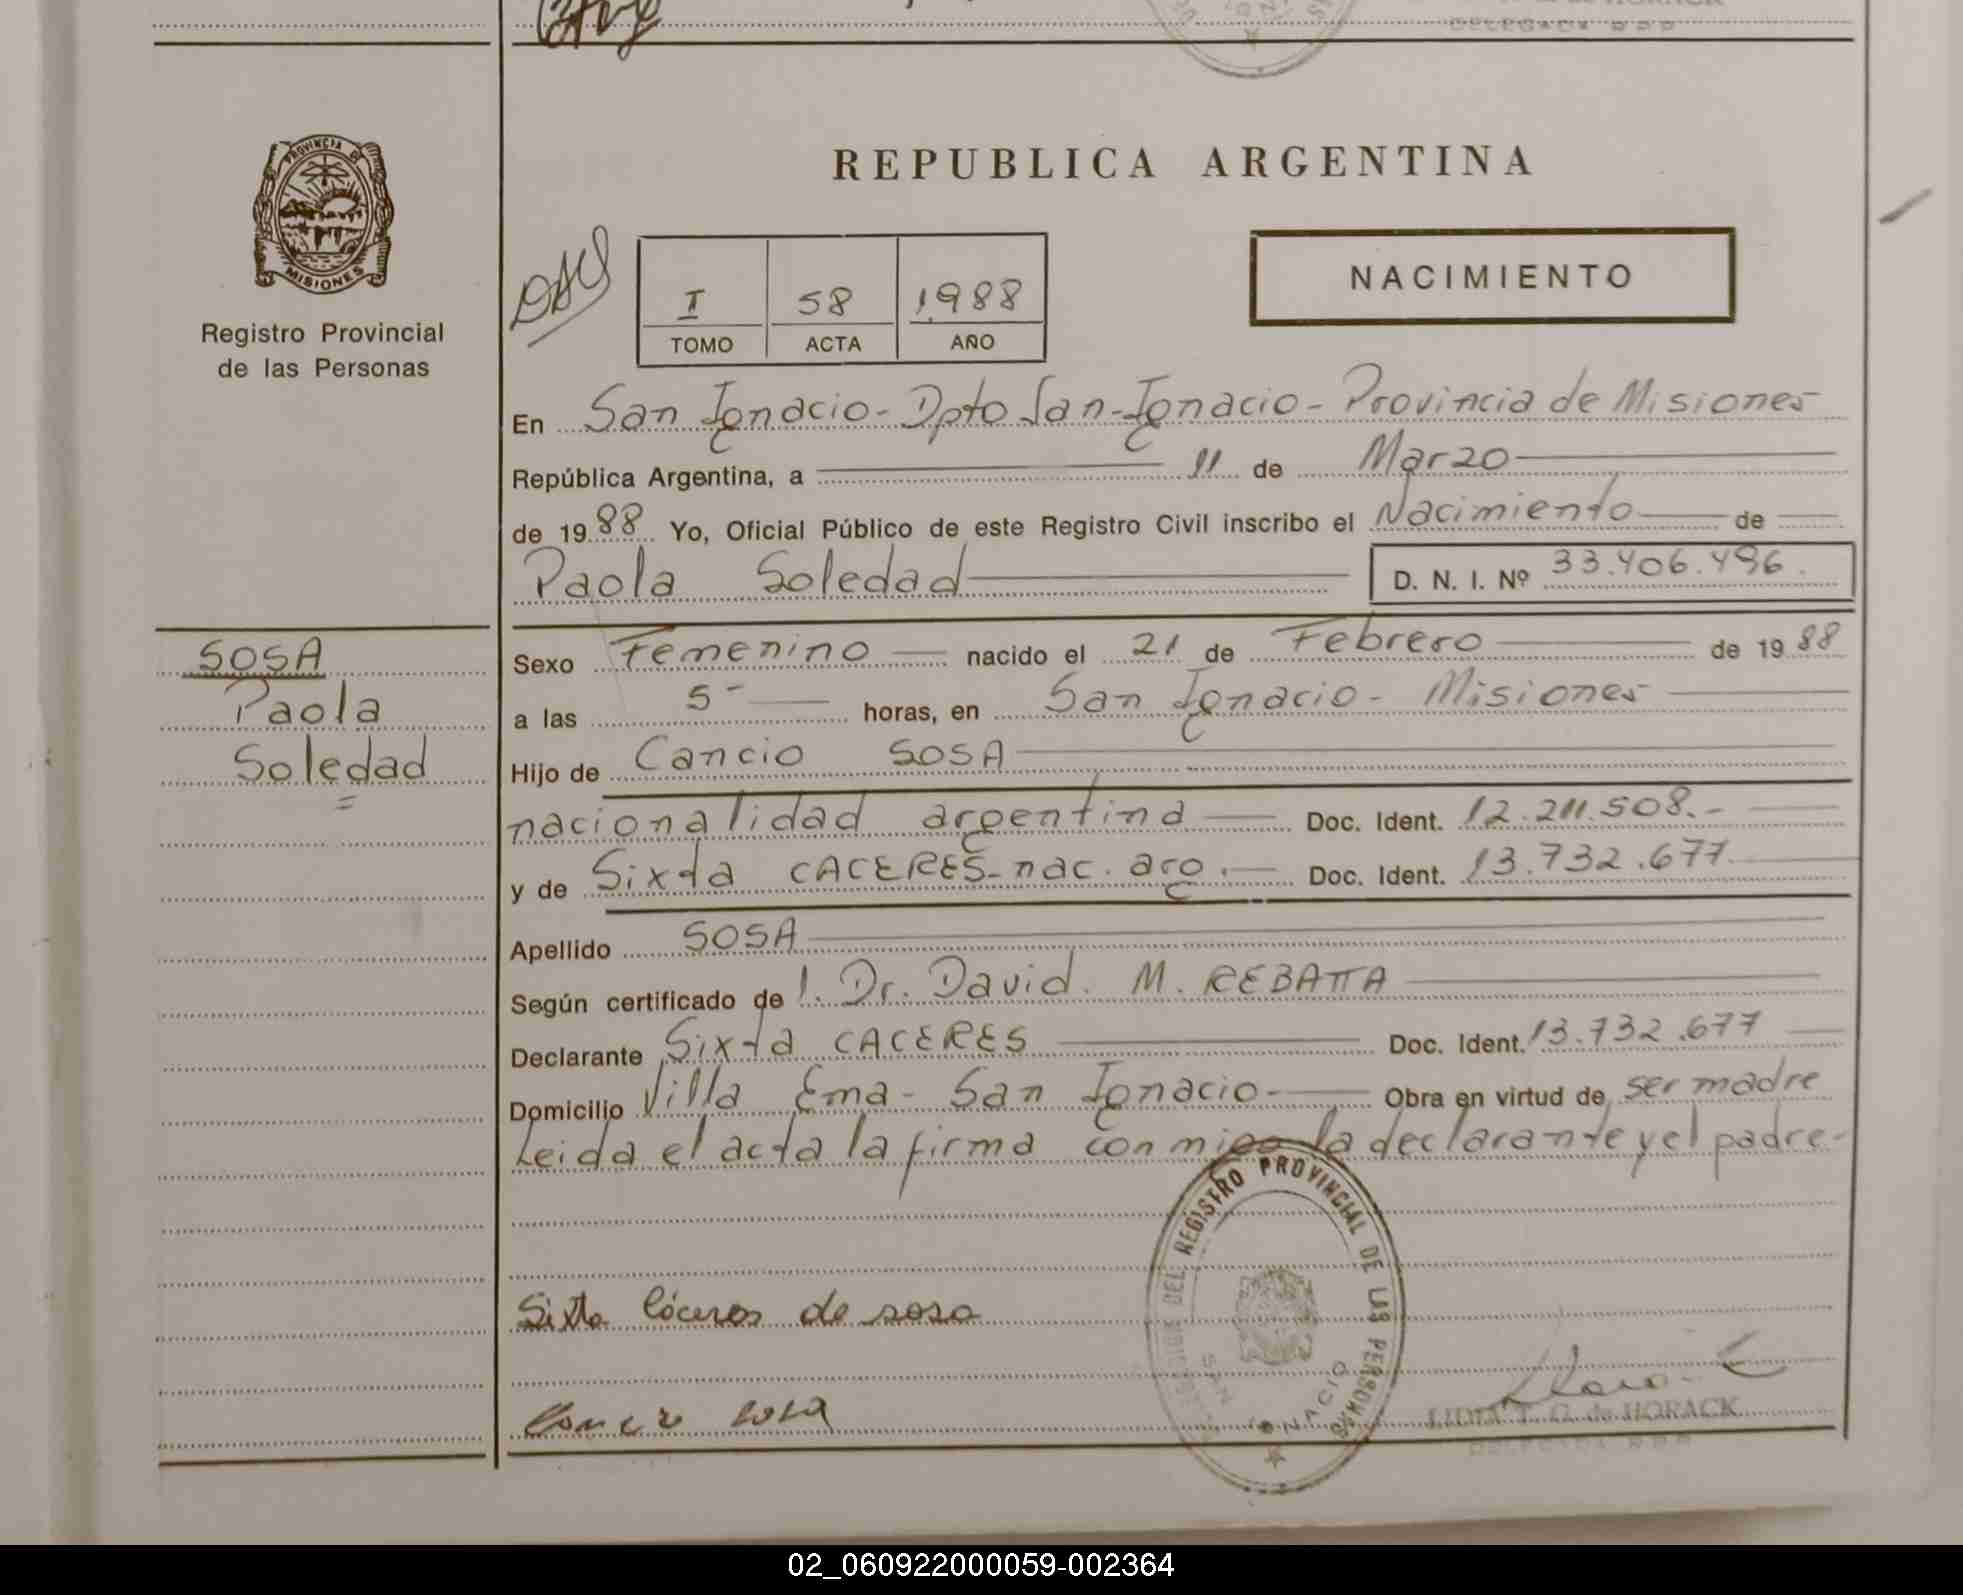 REPUBLICA ARGENTINA
PROVINCIA DE
MISIONES
Registro Provincial
de las Personas
I 58 1988
TOMO ACTA AÑO
NACIMIENTO
En San Ignacio - Dpto San - Ignacio - Provincia de Misiones
República Argentina, a 11 de Marzo
de 1988 Yo, Oficial Público de este Registro Civil inscribo el Nacimiento de
Paola Soledad D. N. I. Nº 33.406.496.
SOSA
Paola
Soledad
Sexo Femenino nacido el 21 de Febrero de 1988
a las 5- horas, en San Ignacio - Misiones
Hijo de Cancio SOSA
nacionalidad argentina Doc. Ident. 12.211.508.-
y de Sixta CACERES - nac. arg. Doc. Ident. 13.732.677
Apellido SOSA
Según certificado de l. Dr. David. M. REBATTA
Declarante Sixta CACERES Doc. Ident. 13.732.677
Domicilio Villa Ema - San Ignacio - Obra en virtud de ser madre
Leida el acta la firma conmigo la declarante y el padre -
REGISTRO PROVINCIAL DE LAS PERSONAS
SAN IGNACIO
Sixta Cáceres de sosa
Cancio sosa
LIDIA T. G. de HORACK
DELEGADA R.P.P.
02_060922000059-002364